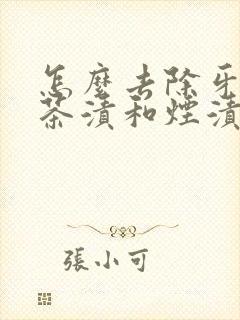 怎麼去除牙
茶漬和煙漬
張小可